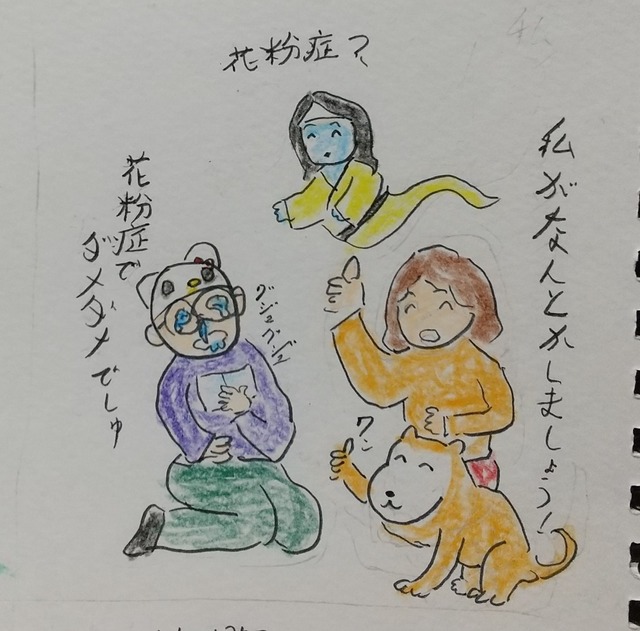 花粉症?
私がなんとかしましょう!
花粉症で
ダメダメでしゅ
グジュグジュ
ワン